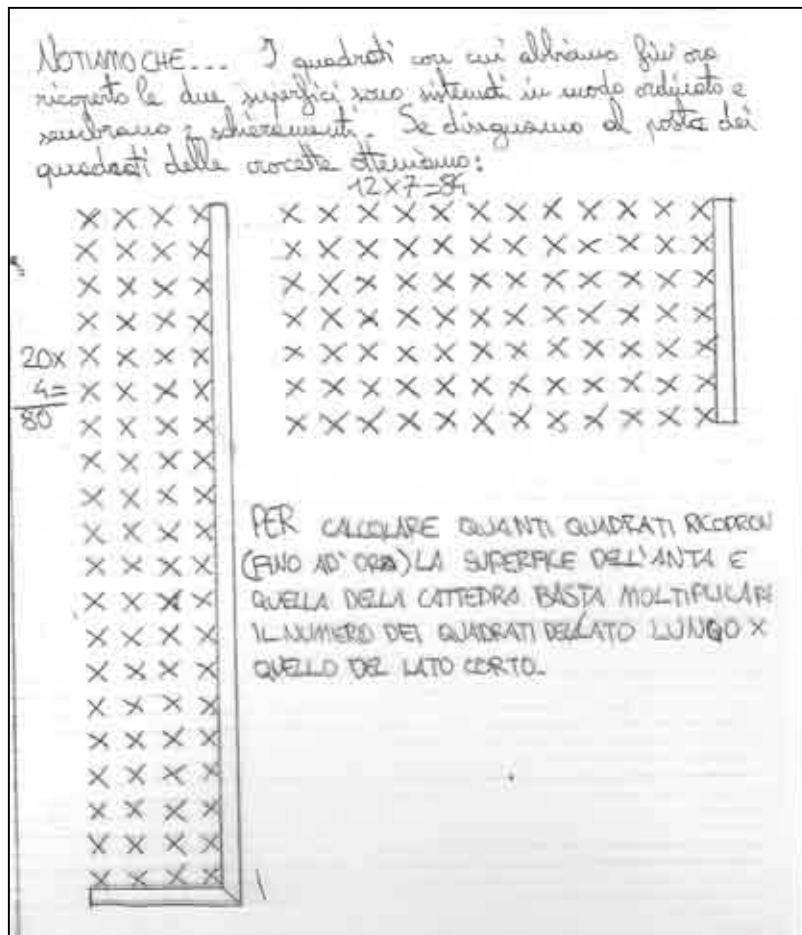 NOTIAMO CHE... I quadrati con cui abbiamo fin ora
ricoperto le due superfici sono sistemati in modo ordinato e
sembrano 2 schieramenti. Se disegnamo al posto dei
quadrati delle crocette otteniamo:
12x7=84
20x
4=
80
PER CALCOLARE QUANTI QUADRATI RICOPRON
(FINO AD' ORA) LA SUPERFICE DELL'ANTA E
QUELLA DELLA CATTEDRA BASTA MOLTIPLICARE
IL NUMERO DEI QUADRATI DEL LATO LUNGO X
QUELLO DEL LATO CORTO.